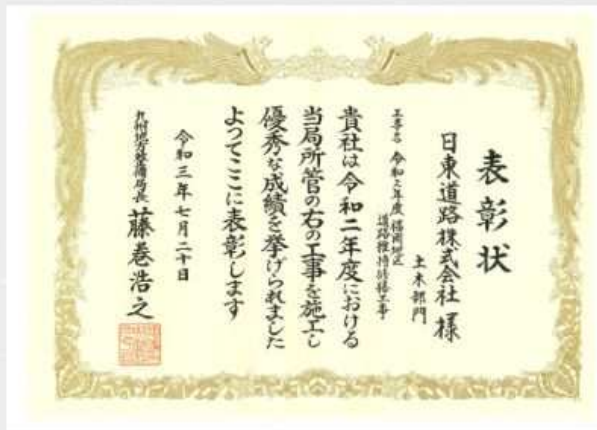 表彰状
日東道路株式会社 様
土木部門
工事名 令和二年度 福岡地区
道路維持修繕工事
貴社は令和二年度における
当局所管の右の工事を施工し
優秀な成績を挙げられました
よってここに表彰します
令和三年七月二十日
九州地方整備局長 藤巻浩之